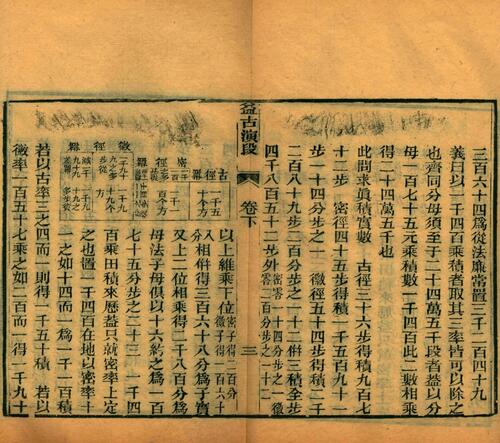 三千六十四爲從法廉常置三千一百四十九
義曰以一千四百乘積者取其三率皆可以除之
也齊同分母須至于二十四萬五千段者蓋以分
母一百七十五元乘積數一千四百此二數相乘
得二十四萬五千也
此問求圓積實數 古徑三十六步得積九百七
十二步 密徑四十五步得積一千五百九十一
步一十四分步之一 徽徑五十四步得積二千
二百八十九步二百分步之一十二併三積全步
四千八百五十二步外密零一十四分步之一徽零二百分步之一十二
益古演段
卷下
三
古徑冪
密徑冪
徽徑冪
以上維乘下位密子得二百分徽子得一百六十
八分相併得三百六十八分爲子實
又上二位相乘得二千八百分
母法子母俱以十六約之爲一百
七十五分步之二十三 一千四
百乘田積來歷蓋只就密率上定
之也置一千四百在地以密率十
一之如十四而一爲一千一百積
若以古率三之四而一則得一千五十積 若以
徽率一百五十七乘之如二百而一得一千九十